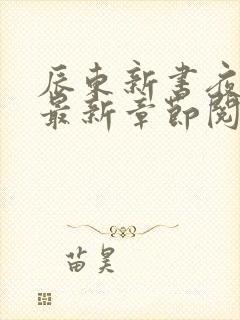 辰东新书夜
最新章节阅
苗昊